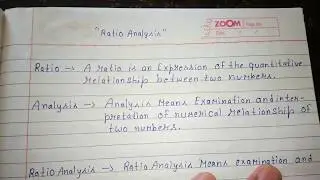 ZOOM
"Ratio Analysis"
Ratio → A ratio is an Expression of the quantitative
relationship between two numbers.
Analysis → Analysis Means Examination and inter-
pretation of numerical relationship of
two numbers.
Ratio Analysis → Ratio Analysis Means examination and